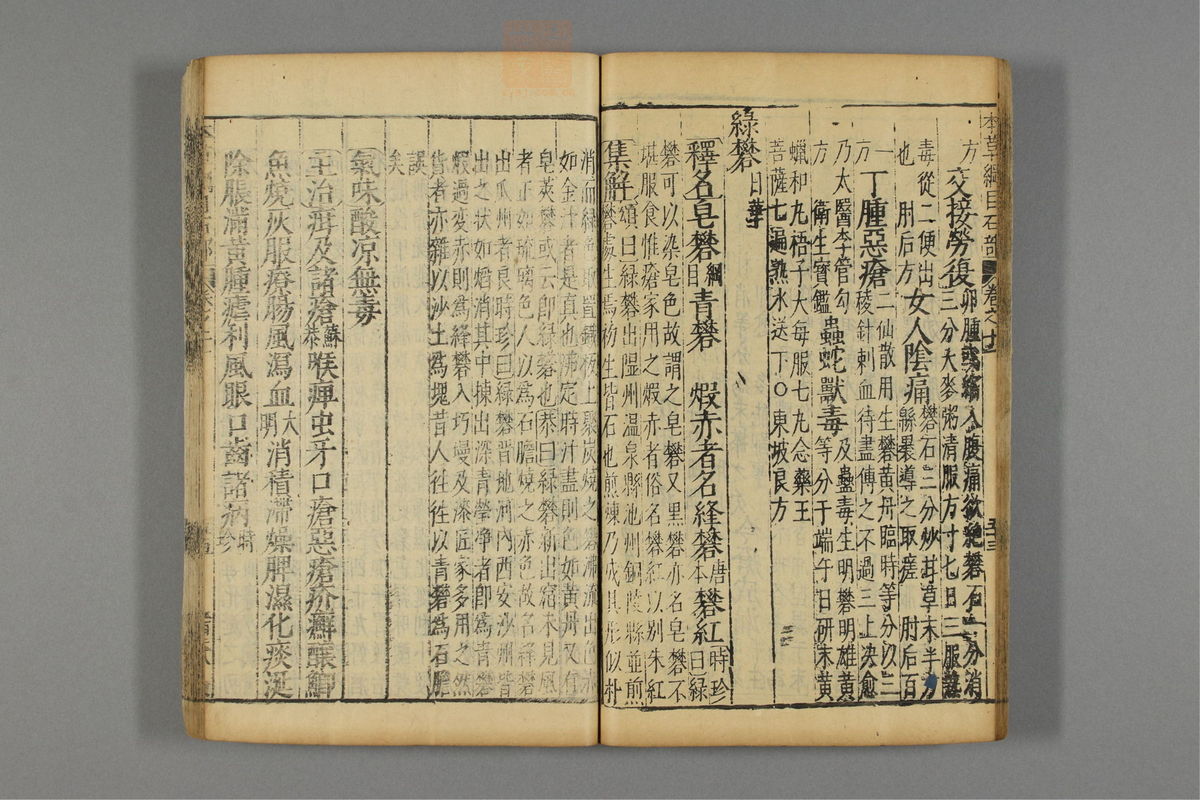 本草綱目石部 卷之十一
方 交接勞復 卵腫或縮入腹痛欲絕礬石一分消
三分大麥粥清服方寸匕日三服熱
毒從二便出
也 肘后方 女人陰痛 礬石三分炒甘草末半分
綿裹導之取瘥 肘后百
一方 丁腫惡瘡 二仙散用生礬黃丹臨時等分以三
稜針刺血待盡傅之不過三上決愈
乃太醫李管勾
方 衛生寶鑑 蟲蛇獸毒 及蠱毒生明礬明雄黃
等分于端午日研末黃
蠟和丸梧子大每服七丸念藥王
菩薩七遍熟水送下○東坡良方
綠礬 日華
釋名皂礬 綱目 青礬 煆赤者名絳礬 唐本 礬紅 時珍曰綠
礬可以染皂色故謂之皂礬又黑礬亦名皂礬不
堪服食惟瘡家用之煆赤者俗名礬紅以別朱紅
集解 頌曰綠礬出隰州溫泉縣池州銅陵縣並煎
礬處生焉初生皆石也煎煉乃成其形似朴
消而綠色取置鐵板上聚炭燒之礬沸流出色赤
如金汁者是真也沸定時汁盡則色如黃丹又有
皂莢礬或云即綠礬也恭曰綠礬新出窟未見風
者正如琉璃色人以為石膽燒之赤色故名絳礬
出瓜州者良時珍曰綠礬晉地河內西安沙州皆
出之狀如焰消其中揀出深青瑩淨者即為青礬
煆過變赤則為絳礬入圬墁及漆匠家多用之然
皆者亦雜以沙土為塊昔人往往以青礬為石膽
誤矣
氣味酸凉無毒
主治疳及諸瘡 蘇恭 喉痺虫牙口瘡惡瘡疥癬釀鯽
魚燒灰服療腸風瀉血 大明 消積滯燥脾濕化痰涎
除脹滿黃腫瘧利風眼口齒諸病 時珍